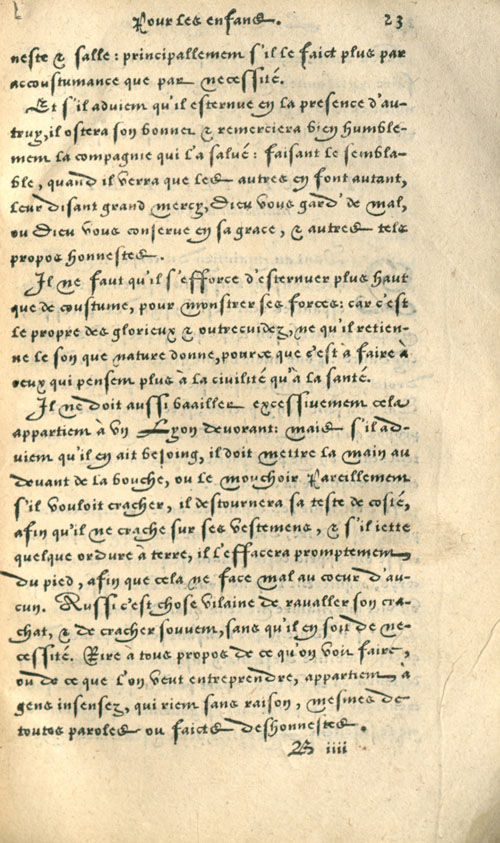 Pour les enfans. 23
neste & salle: principallement s'il le faict plus par
accoustumance que par necessité.
Et s'il advient qu'il esternue en la presence d'au-
truy, il ostera son bonnet & remerciera bien humble-
ment la compagnie qui l'a salué: faisant le sembla-
ble, quand il verra que les autres en font autant,
leur disant grand mercy, Dieu vous gard' de mal,
ou Dieu vous conserve en sa grace, & autres tels
propos honnestes.
Il ne faut qu'il s'efforce d'esternuer plus haut
que de coustume, pour monstrer ses forces: car c'est
le propre des glorieux & outrecuidez, ne qu'il retien-
ne le son que nature donne, pource que c'est à faire à
ceux qui pensent plus à la civilité qu'à la santé.
Il ne doit aussi baailler excessivement cela
appartient à vn Lyon devorant: mais s'il ad-
vient qu'il en ait besoing, il doit mettre la main au
devant de la bouche, ou le mouchoir Pareillement
s'il vouloit cracher, il destournera sa teste de costé,
afin qu'il ne crache sur ses vestemens, & s'il iette
quelque ordure à terre, il l'effacera promptement
du pied, afin que cela ne face mal au coeur d'au-
cun. Aussi c'est chose vilaine de ravaller son cra-
chat, & de cracher souvent, sans qu'il en soit de ne-
cessité. Rire à tous propos de ce qu'on voit faire,
ou de ce que l'on veut entreprendre, appartient à
gens insensez, qui rient sans raison, mesmes de
toutes paroles ou faicts deshonnestes.
B iiii